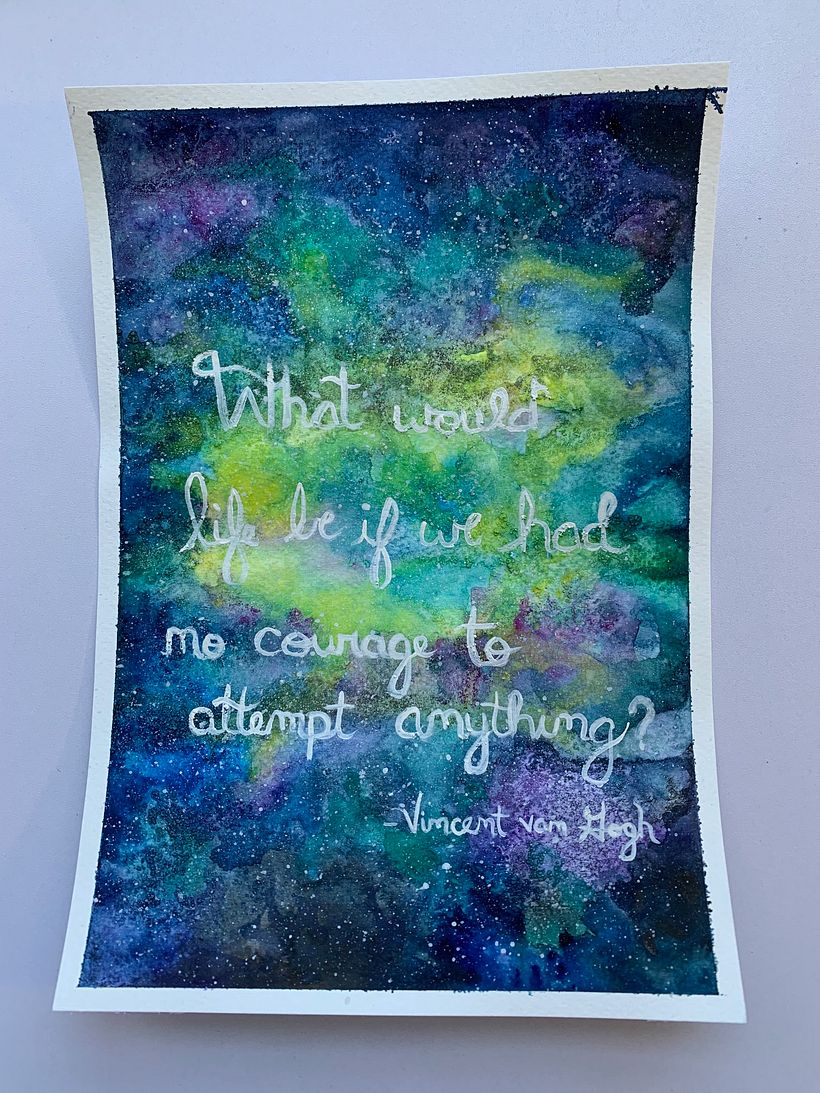 What would
life be if we had
no courage to
attempt anything?
-Vincent van Gogh